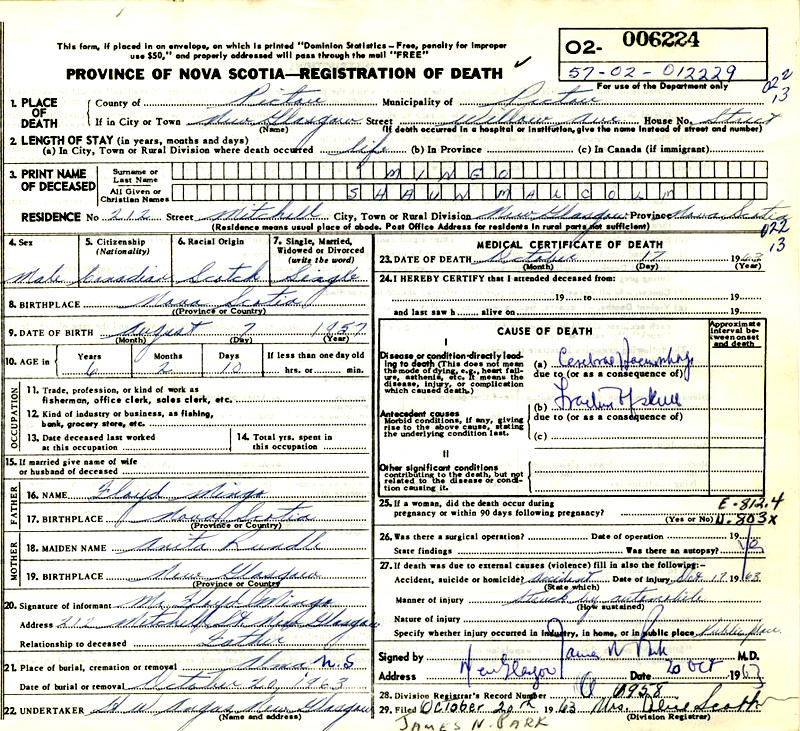 This form, if placed in an envelope, on which is printed "Dominion Statistics - Free, penalty for improper
use $50," and properly addressed will pass through the mail "FREE"
02- 006224
57-02-012229
For use of the Department only
PROVINCE OF NOVA SCOTIA—REGISTRATION OF DEATH
022
13
1. PLACE OF DEATH
County of Pictou Municipality of Pictou
If in City or Town New Glasgow Street Willow Ave House No. Street
(Name) (If death occurred in a hospital or institution, give the name instead of street and number)
2. LENGTH OF STAY (in years, months and days)
(a) In City, Town or Rural Division where death occurred life (b) In Province (c) In Canada (if immigrant)
3. PRINT NAME OF DECEASED
Surname or Last Name MINGO
All Given or Christian Names SHAUN MALCOLM
RESIDENCE No 212 Street Mitchell City, Town or Rural Division New Glasgow Province Nova Scotia
(Residence means usual place of abode. Post Office Address for residents in rural parts not sufficient)
022
13
4. Sex
Male
5. Citizenship (Nationality)
Canadian
6. Racial Origin
Scotch
7. Single, Married, Widowed or Divorced (write the word)
Single
8. BIRTHPLACE Nova Scotia
(Province or Country)
9. DATE OF BIRTH August 7 1957
(Month) (Day) (Year)
10. AGE in
Years Months Days If less than one day old
6 2 10 hrs. or min.
OCCUPATION
11. Trade, profession, or kind of work as
fisherman, office clerk, sales clerk, etc.
12. Kind of industry or business, as fishing,
bank, grocery store, etc.
13. Date deceased last worked
at this occupation
14. Total yrs. spent in
this occupation
15. If married give name of wife
or husband of deceased
FATHER
16. NAME Floyd Mingo
17. BIRTHPLACE Nova Scotia
(Province or Country)
MOTHER
18. MAIDEN NAME Anita Rundle
19. BIRTHPLACE New Glasgow
(Province or Country)
20. Signature of informant Mr. Floyd Mingo
Address 212 Mitchell St New Glasgow
Relationship to deceased Father
21. Place of burial, cremation or removal Alma N.S
Date of burial or removal October 20, 1963
22. UNDERTAKER H W Angus New Glasgow
(Name and address)
MEDICAL CERTIFICATE OF DEATH
23. DATE OF DEATH October 17 1963
(Month) (Day) (Year)
24. I HEREBY CERTIFY that I attended deceased from:
19 to 19
and last saw h alive on 19
CAUSE OF DEATH
Approximate interval between onset and death
I
Disease or condition directly leading to death (This does not mean
the mode of dying, e.g., heart failure, asthenia, etc. It means the
disease, injury, or complication
which caused death.)
(a) Cerebral Haemorrhage
due to (or as a consequence of)
(b) Fracture of skull
due to (or as a consequence of)
(c)
Antecedent causes
Morbid conditions, if any, giving
rise to the above cause, stating
the underlying condition last.
II
Other significant conditions
contributing to the death, but not
related to the disease or condition causing it.
25. If a woman, did the death occur during
pregnancy or within 90 days following pregnancy?
(Yes or No)
E-812.4
N.803X
26. Was there a surgical operation? Date of operation 19
State findings Was there an autopsy?
27. If death was due to external causes (violence) fill in also the following:-
Accident, suicide or homicide? Accident Date of injury Oct 17 1963
(State which)
Manner of injury Struck by automobile
(How sustained)
Nature of injury
Specify whether injury occurred in industry, in home, or in public place Public place
Signed by James N Park M.D.
Address New Glasgow Date 20 Oct 1963
28. Division Registrar's Record Number 0958
29. Filed October 20th 1963 Mrs. Alice Scott
(Division Registrar)
JAMES N. PARK